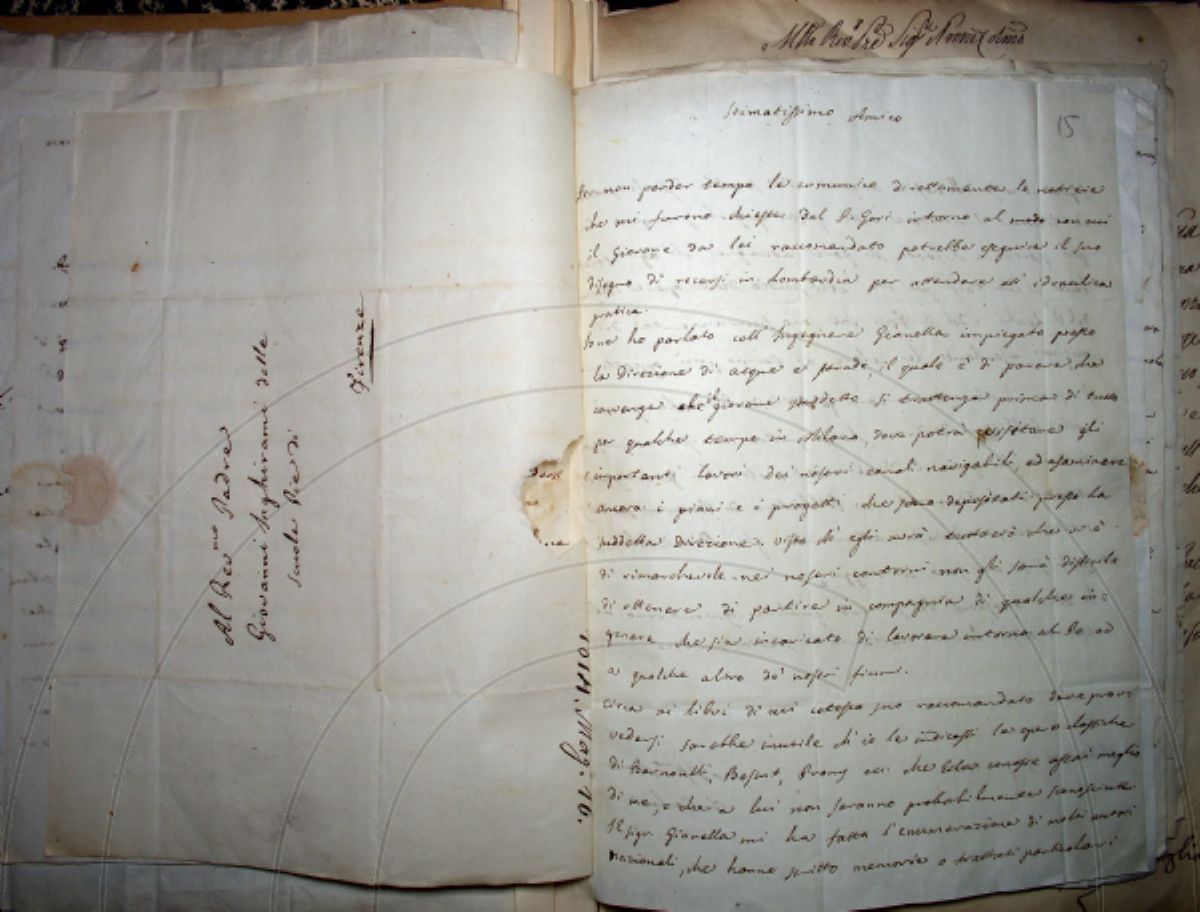 Al Rev.mo Padre
Giovanni Inghirami delle
Scuole Pie di
Firenze
1814. Mag. 10.
Stimatissimo Amico
15
Per non perder tempo le comunico direttamente le notizie
che mi furono chieste dal P. Gori intorno al modo con cui
il Giovane da lei raccomandato potrebbe eseguire il suo
disegno di recarsi in Lombardia per attendere all' idraulica
pratica.
Io ne ho parlato coll' Ingegnere Gianella impiegato presso
la Direzione di acque e strade, il quale è di parere che
convenga che il giovane suddetto si trattenga prima di tutto
per qualche tempo in Milano, dove potrà visitare gli
importanti lavori dei nostri canali navigabili, ed esaminare
ancora i piani e i progetti che sono depositati presso la
suddetta Direzione. Visto ch' egli avrà tuttociò che v' è
di rimarchevole nei nostri contorni non gli sarà difficile
di ottenere di partire in compagnia di qualche in=
gegnere che sia incaricato di lavorare intorno al Po od
a qualche altro de' nostri fiumi.
Circa ai libri di cui cotesto suo raccomandato deve prov
vedersi sarebbe inutile ch' io le indicassi le opere classiche
di Bernoulli, Bossut, Prony ecc. che Ella conosce assai meglio
di me, e che a lui non saranno probabilmente sconosciute.
Il Sigr. Gianella mi ha fatta l' enumerazione di molti autori
nazionali, che hanno scritto memorie o trattati particolari